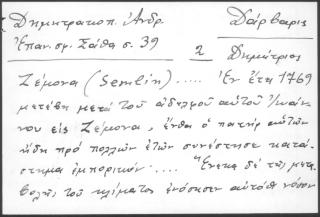 Δημητρακοπ. Ἀνδρ. Δάρβαρις
Ἐπαν. σφ. Σάθα σ. 39 2 Δημήτριος
Ζέμονα (Semlin).... Ἐν ἔτει 1769
μετέβη μετά τοῦ ἀδελφοῦ αὐτοῦ Ἰωάν-
νου εἰς Ζέμονα, ἔνθα ὁ πατήρ αὐτῶν
ἤδη πρό πολλῶν ἐτῶν συνέστησε κατά-
στημα ἐμπορικόν.... Ἕνεκα δέ τῆς μετα-
βολῆς τοῦ κλίματος ἐνόσησεν αὐτόθι νόσον